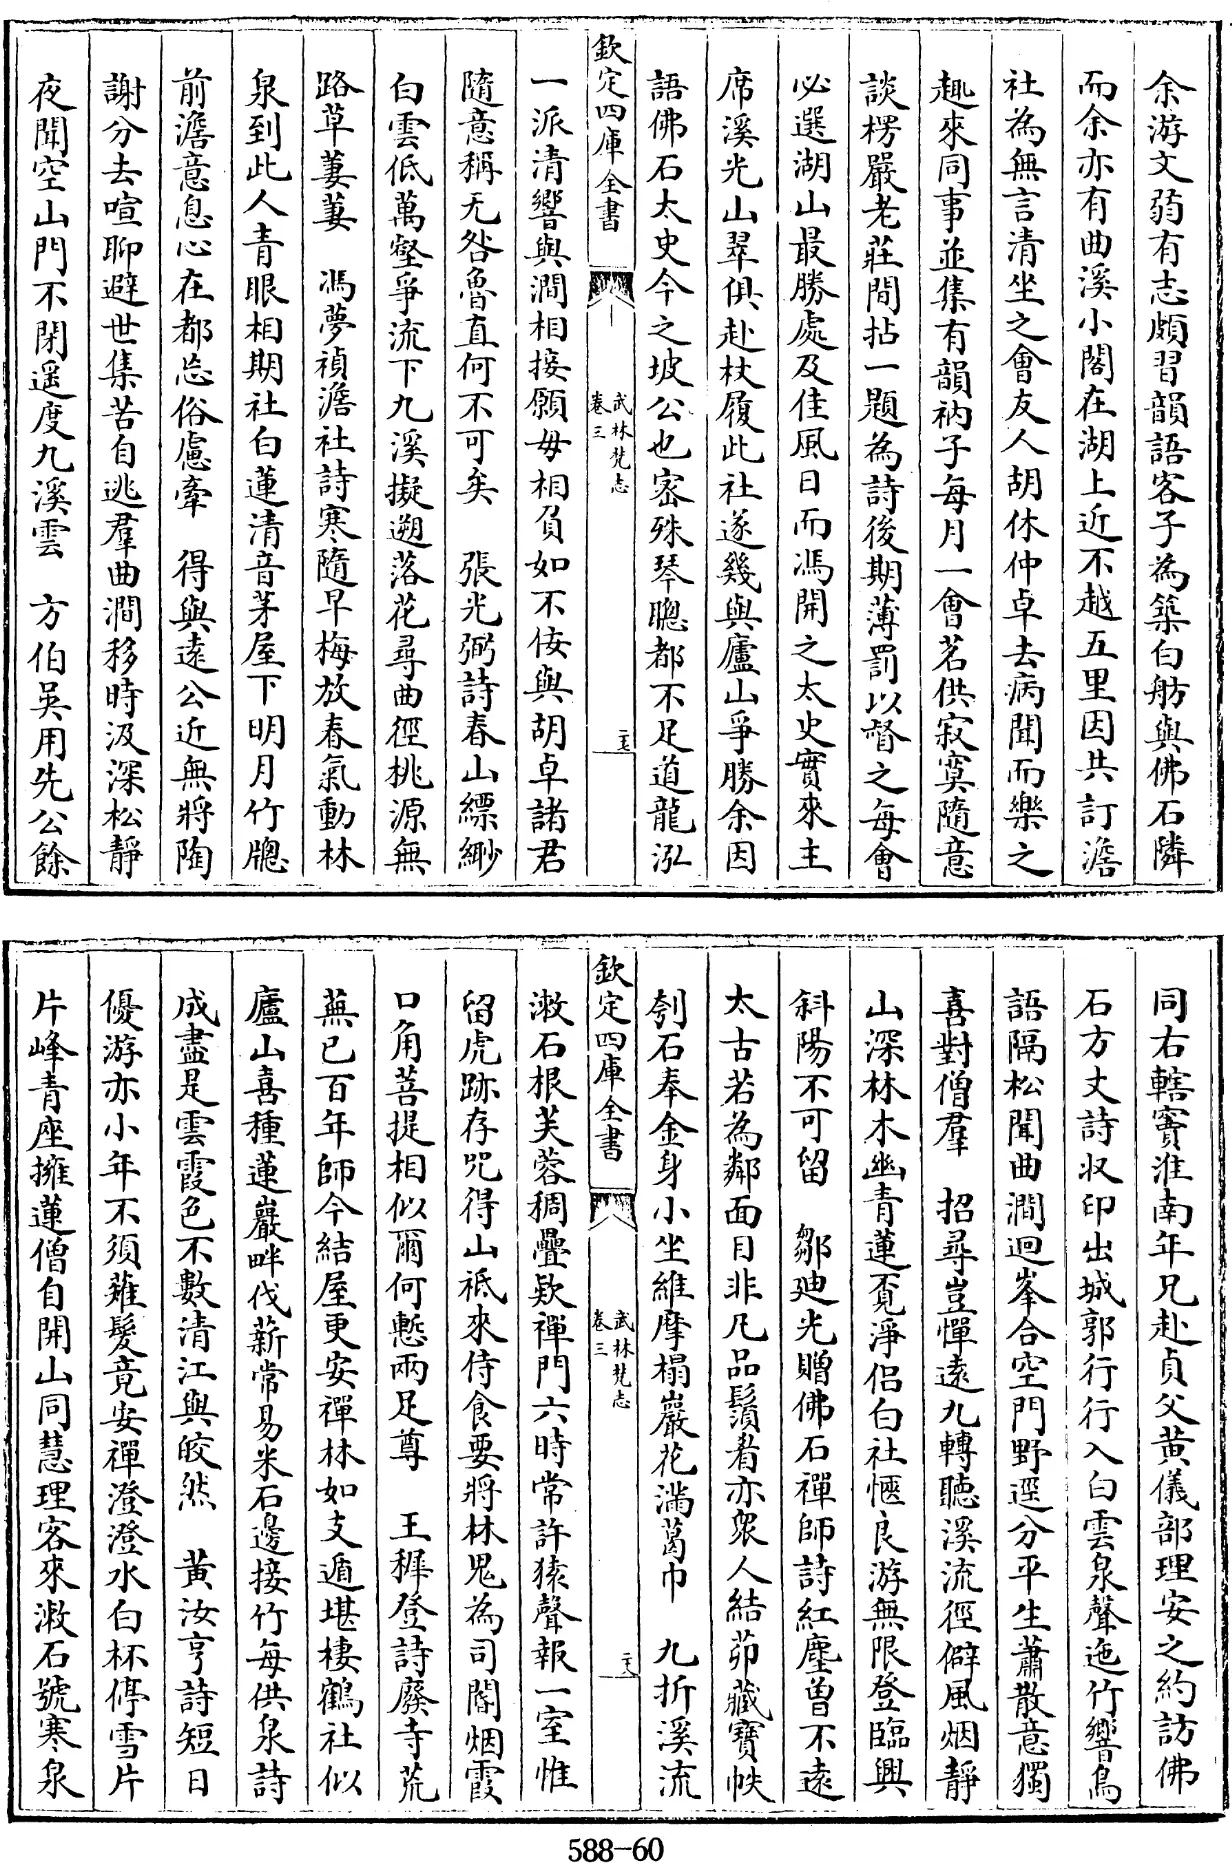 余游文弱有志頗習韻語客子為築白舫與佛石隣
而余亦有曲溪小閣在湖上近不越五里因共訂澹
社為無言清坐之會友人胡休仲卓去病聞而樂之
趣來同事並集有韻衲子每月一會茗供寂寞隨意
談楞嚴老莊間拈一題為詩後期薄罰以督之每會
必選湖山最勝處及佳風日而馮開之太史實來主
席溪光山翠俱赴杖履此社遂幾與廬山爭勝余因
語佛石太史今之坡公也密殊琴聰都不足道龍泓
欽定四庫全書
武林梵志
卷三
二十七
一派清響與澗相接願毋相負如不佞與胡卓諸君
隨意稱无咎魯直何不可矣　張光弼詩春山縹緲
白雲低萬壑爭流下九溪擬遡落花尋曲徑桃源無
路草萋萋　馮夢禎澹社詩寒隨早梅放春氣動林
泉到此人青眼相期社白蓮清音茅屋下明月竹牕
前澹意息心在都忘俗慮牽　得與遠公近無將陶
謝分去喧聊避世集苦自逃羣曲澗移時汲深松靜
夜聞空山門不閉遥度九溪雲　方伯吳用先公餘
同右轄竇淮南年兄赴貞父黄儀部理安之約訪佛
石方丈詩収印出城郭行行入白雲泉聲迤竹響鳥
語隔松聞曲澗迴峯合空門野逕分平生蕭散意獨
喜對僧羣　招尋豈憚遠九轉聽溪流徑僻風烟靜
山深林木幽青蓮覔淨侶白社愜良游無限登臨興
斜陽不可留　鄒廸光贈佛石禪師詩紅塵曽不遠
太古若為鄰面目非凡品鬚眉亦衆人結茆藏寶帙
刳石奉金身小坐維摩榻巖花滿葛巾　九折溪流
欽定四庫全書
武林梵志
卷三
二十八
漱石根芙蓉稠疊欵禪門六時常許猿聲報一室惟
留虎跡存咒得山祗來侍食要將林鬼為司閽烟霞
口角菩提相似爾何慙兩足尊　王穉登詩廢寺荒
蕪已百年師今結屋更安禪林如支遁堪棲鶴社似
廬山喜種蓮巖畔伐薪常易米石邊接竹每供泉詩
成盡是雲霞色不數清江與皎然　黄汝亨詩短日
優游亦小年不須薙髪竟安禪澄澄水白杯停雪片
片峰青座擁蓮僧自開山同慧理客來漱石號寒泉
588-60